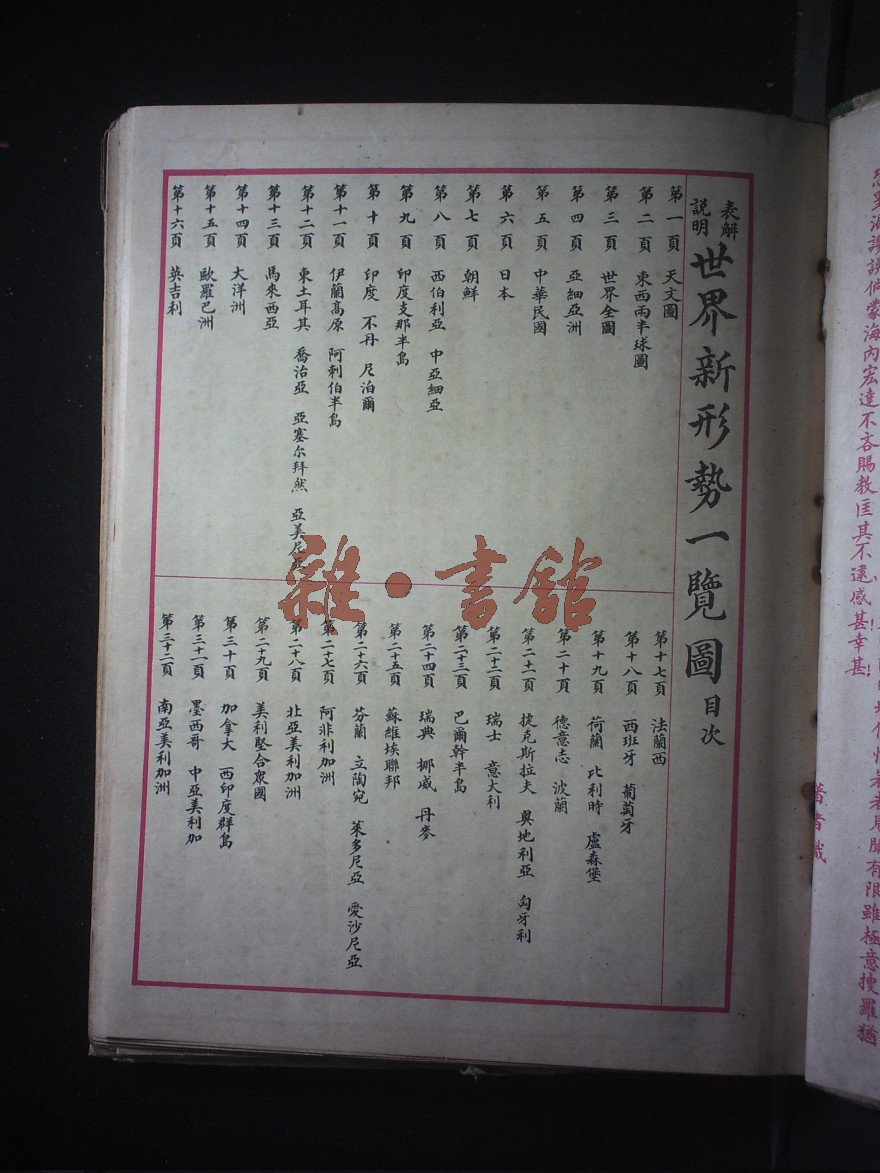 表解
説明
世界新形勢一覽圖目次
第一頁 天文圖
第二頁 東西兩半球圖
第三頁 世界全圖
第四頁 亞細亞洲
第五頁 中華民國
第六頁 日本
第七頁 朝鮮
第八頁 西伯利亞 中亞細亞
第九頁 印度支那半島
第十頁 印度 不丹 尼泊爾
第十一頁 伊蘭髙原 阿剌伯半島
第十二頁 東土耳其 喬治亞 亞塞尔拜然 亞美尼亞
第十三頁 馬來西亞
第十四頁 大洋洲
第十五頁 歐羅巴洲
第十六頁 英吉利
第十七頁 法蘭西
第十八頁 西班牙 葡萄牙
第十九頁 荷蘭 比利時 盧森堡
第二十頁 德意志 波蘭
第二十一頁 捷克斯拉夫 奥地利亞 匈牙利
第二十二頁 瑞士 意大利
第二十三頁 巴爾幹半島
第二十四頁 瑞典 挪威 丹麥
第二十五頁 蘇維埃聯邦
第二十六頁 芬蘭 立陶宛 萊多尼亞 愛沙尼亞
第二十七頁 阿非利加洲
第二十八頁 北亞美利加洲
第二十九頁 美利堅合衆國
第三十頁 加拿大 西印度群島
第三十一頁 墨西哥 中亞美利加
第三十二頁 南亞美利加洲
雜·書館
有限雖極意搜羅猶
誤倘蒙海内宏達不吝賜教匡其不逮感甚幸甚!
著者識